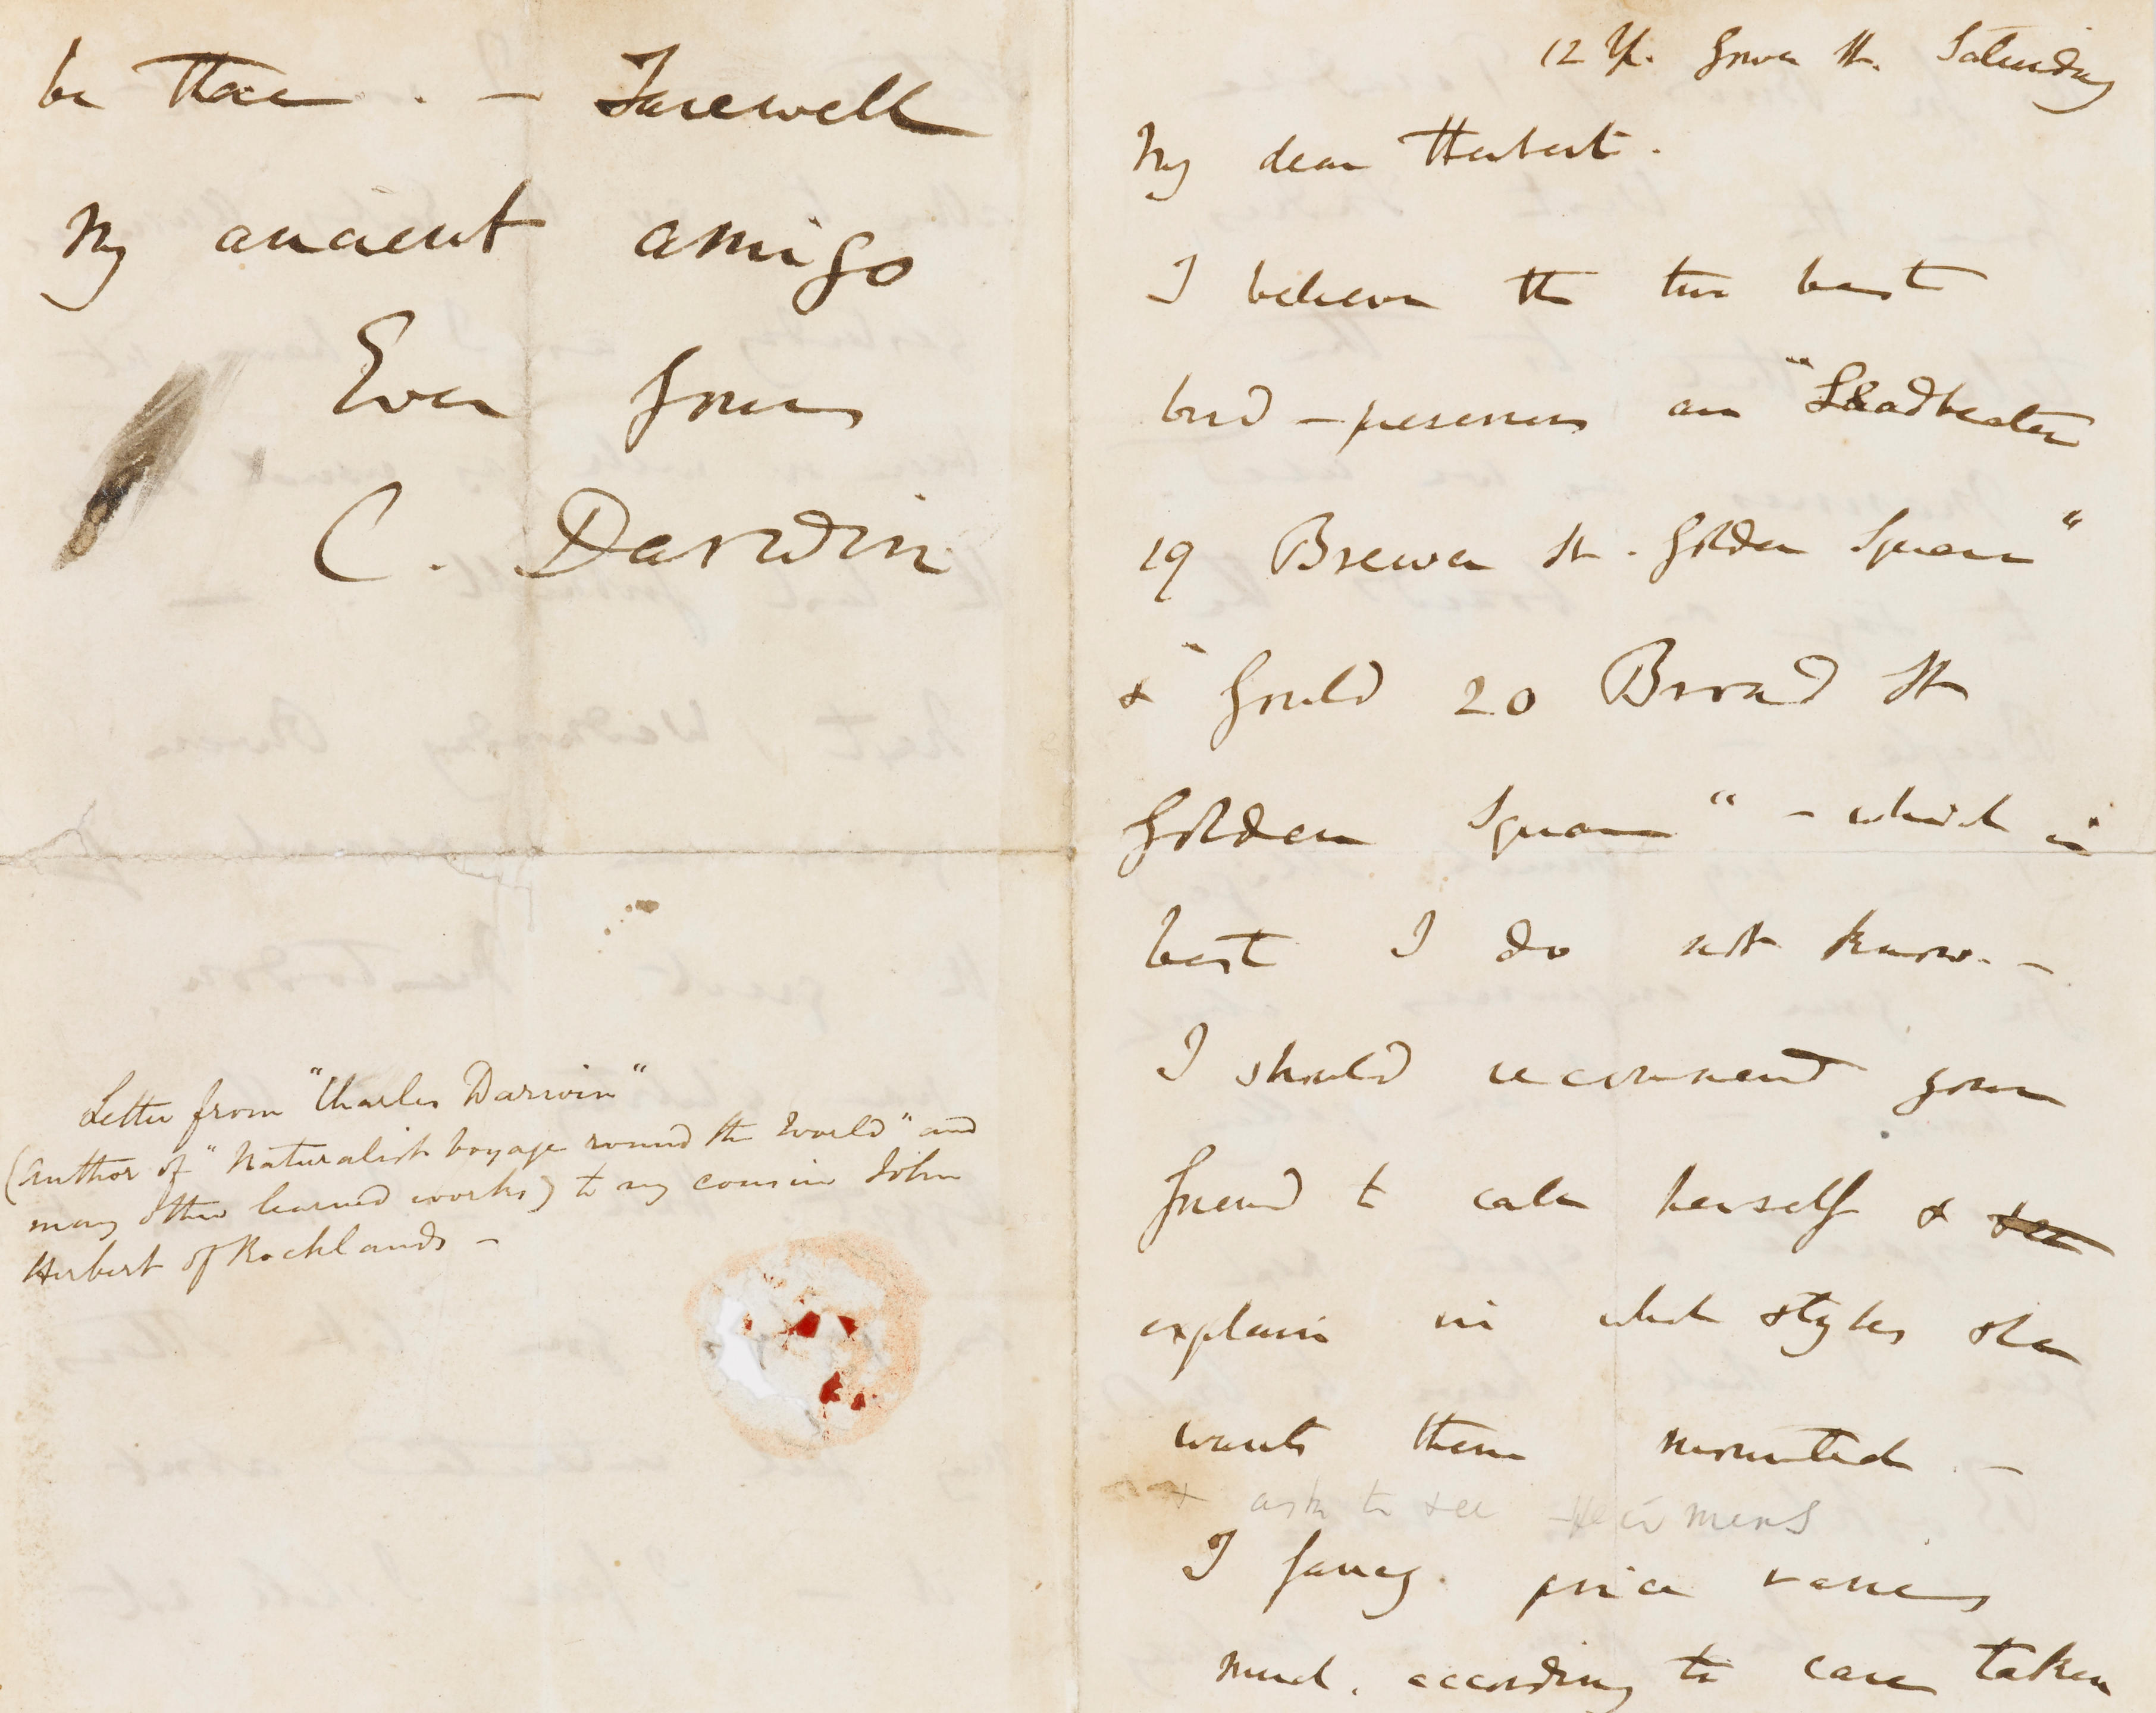 be there. — Farewell
My ancient amigo
Ever yours
C. Darwin
Letter from "Charles Darwin"
(Author of "Naturalist voyage round the World" and
many other learned works) to my cousin John
Herbert of Rocklands —
12 Up. Gower St. Saturday
My dear Herbert.
I believe the two best
bird-preservers are "Leadbeater
19 Brewer St. Golden Square"
& "Gould 20 Broad St
Golden Square" — which is
best I do not know. —
I should recommend your
friend to call herself & see
explain in what styles she
wants them mounted. —
& ask to see specimens
I fancy price varies
much, according to care taken